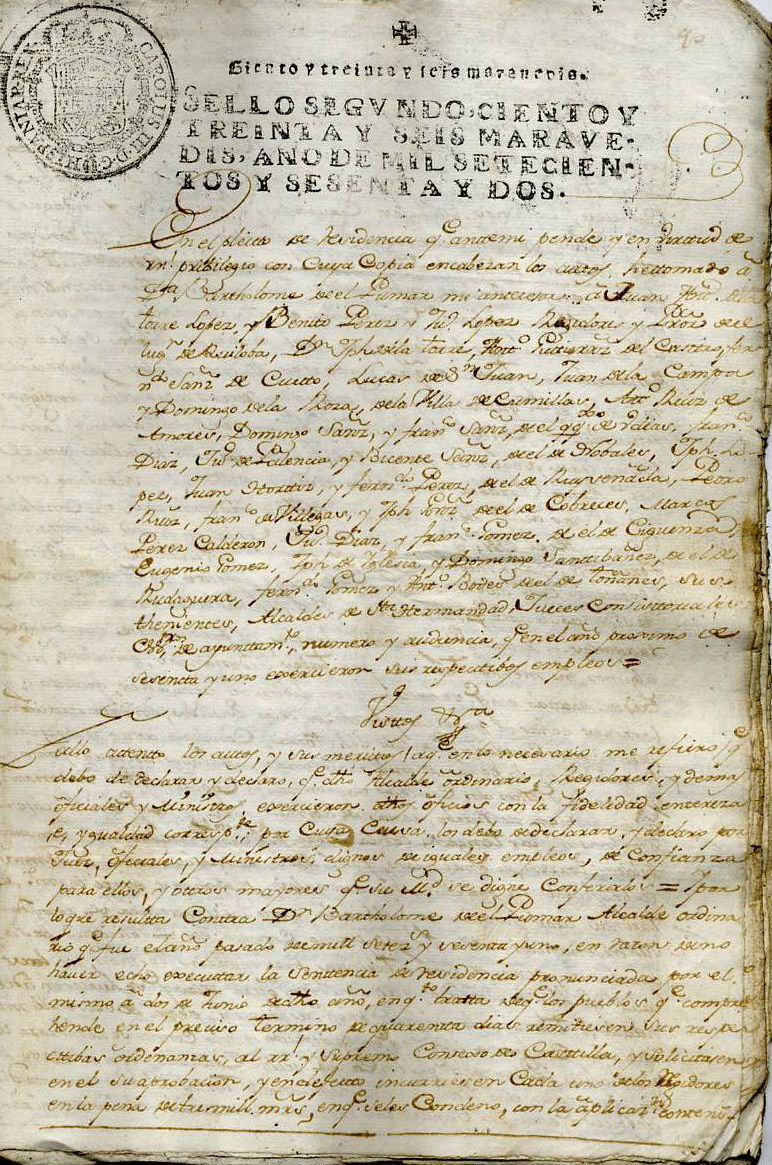 CAROLUS III D G HISPANIAR REX
Ciento y treinta y seis maravedis.
SELLO SEGVNDO, CIENTO Y
TREINTA Y SEIS MARAVE-
DIS, AÑO DE MIL SETECIEN-
TOS Y SESENTA Y DOS.
En el pleito de residencia q.e antemi pende y en virttud de
rr.l previlegio con Cuya Copia encabezan los auttos, he ttomado a
D.n Bartholome de el Pumar mi antecesor, a Juan Ant.o de la
torre Lopez, y Benito Perez y Ju.o Lopez Rexidores y Pror de el
lug.r de Ruiloba, D.n Jph de la torre, Ant.o Gutierrez del Castro, fer
n.do Sanz de Cuetto, Lucas de S.n Juan, Juan de la Campa
y Domingo de la Roza, de la Villa de Cumillas, Ant.o Ruiz de
Amores, Domingo Sanz, y fran.co Sanz, de el de Udias, fran.co
Diaz, Ju.o de Palencia, y Bicente Sanz, de el de Nobales, Jph Lo-
pez, Juan y fern.do Perez, de el de Ruysenada, Pedro
Ruiz, fran.co de Villegas, y Jph de el de Cobreces, Marcos
Perez Calderon, Ju.o Diaz, y fran.co Gomez de el de Ciguenza,
Eugenio Gomez, Jph de Iglesia, y Domingo Santtibañez, de el de
Rudaguera, fern.do Gomez y Ant.o de el de toñanes, sus
thenientes, Alcaldes de S.ta Hermandad, Jueces Consistoriales
de ayunttam.to, numero y audiencia, q.e en el año proximo de
sesenta y uno exercieron sus respectibos empleos =
Visttos &.a
fallo attento los auttos, y sus meritos (a q.e en lo necesario me refiero) q.e
debo de declarar y declaro, q.e dho Alcalde ordinario, Regidores, y demas
oficiales y Ministros, exercieron dhos oficios con la fidelidad entereza
e, ygualdad corresp.te por Cuya Causa, los debo de declarar, y declaro por
Juez, oficiales, y Ministros, dignos de iguales empleos, de Confianza
para ellos, y ottros mayores q.e su Mg.d se digne Conferirlos = Y por
lo que resulta Contra D.n Bartholome de el Pumar Alcalde ordina
rio q.e fue el año pasado de mill setez.s y sesenta y uno, en razon de no
haver echo executtar la sentencia de residencia pronunciada por el
mismo a dos de Junio de dho año, en q.to tratta de q.e los pueblos q.e compre
hende en el preciso termino de quarenta dias remitiesen sus respe
cttibas ordenanzas, al rr.l y Supremo Consejo de Casttilla, y solicitasen
en el su aprobacion, y en defecto incurriesen Cada uno de los Regidores
en la pena de tres mill mrs, en q.e se les Condeno, con la aplicaz.n conten